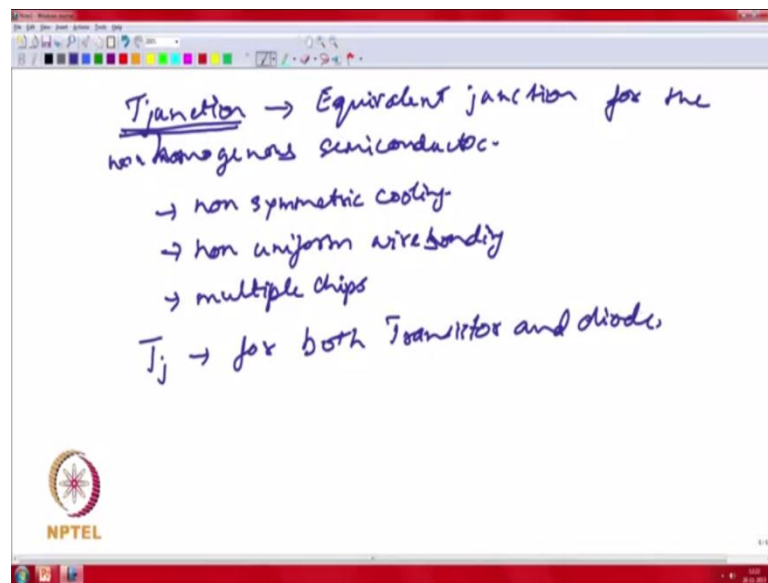 Note1 - Windows Journal
File Edit View Insert Actions Tools Help
Tjunction → Equivalent junction for the
non homogenous semiconductor.
→ non symmetric cooling
→ non uniform wirebonding
→ multiple chips
Tj → for both Transistor and diode,
NPTEL